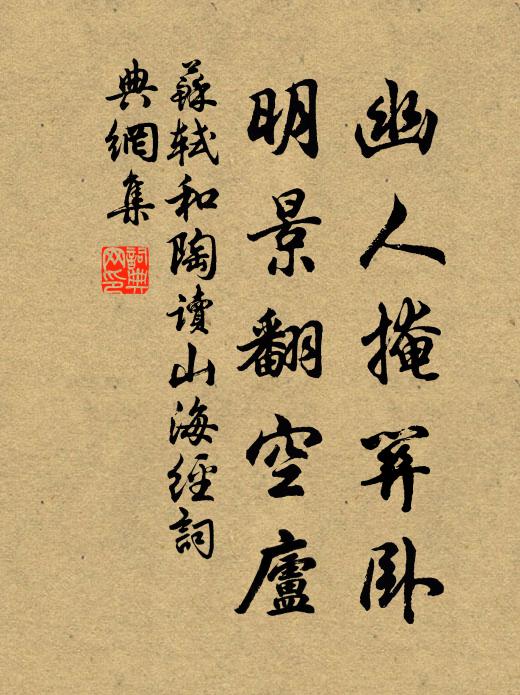 幽人掩關卧
明景翻空廬
蘇軾和陶讀山海經詞
典網集
詞典
网印